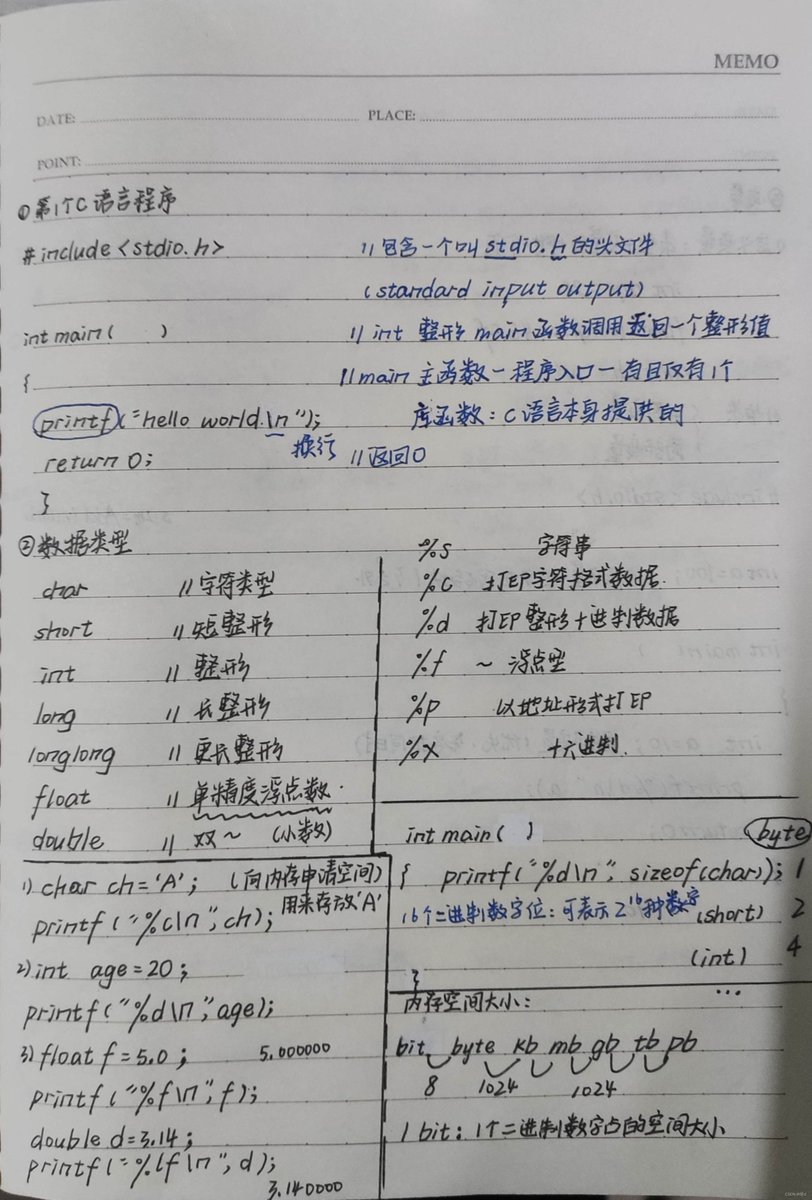 MEMO
DATE:
PLACE:
POINT:
①第1个C语言程序
#include <stdio.h>
//包含一个叫stdio.h的头文件
(standard input output)
int main( )
// int 整形 main函数调用返回一个整形值
{
//main主函数-程序入口-有且仅有1个
printf("hello world.\n");
库函数:C语言本身提供的
换行
return 0;
//返回0
}
②数据类型
char //字符类型
short //短整形
int //整形
long //长整形
longlong //更长整形
float //单精度浮点数.
double //双~ (小数)
%s 字符串
%c 打EP字符格式数据.
%d 打EP整形十进制数据
%f ~ 浮点型
%p 以地址形式打EP
%x 十六进制.
1) char ch='A'; (向内存申请空间)
用来存放'A'
printf("%c\n",ch);
2) int age=20;
printf("%d\n",age);
3) float f=5.0; 5.000000
printf("%f\n",f);
double d=3.14;
printf("%lf\n",d);
3.140000
int main( ) byte
{ printf("%d\n", sizeof(char)); 1
16个二进制数字位:可表示2^16种数字
(short) 2
(int) 4
}
...
内存空间大小:
bit byte kb mb gb tb pb
8 1024 1024
1 bit:1个二进制数字占的空间大小